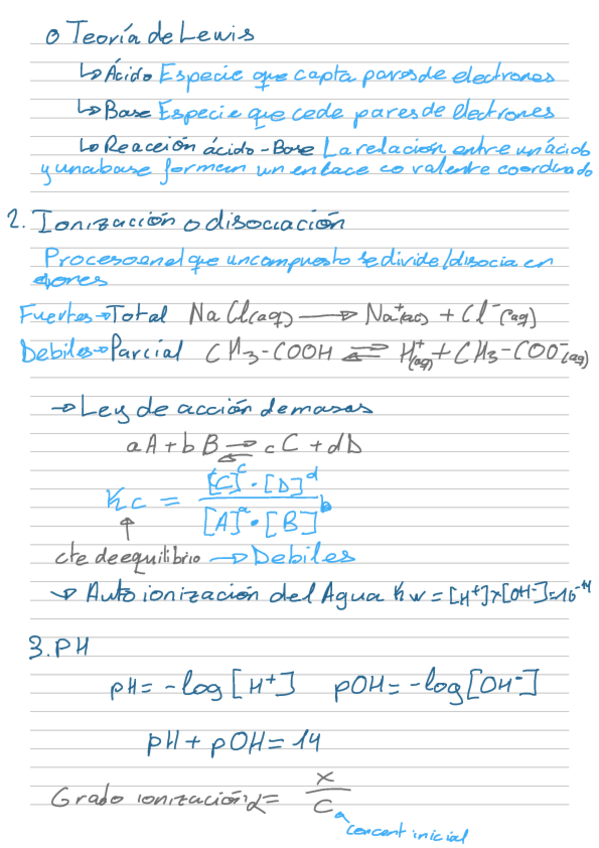 o Teoría de Lewis
↳ Ácido Especie que capta pares de electrones
↳ Base Especie que cede pares de electrones
↳ Reacción ácido-Base La relacion entre un ácido
y una base forman un enlace covalente coordinado
2. Ionización o disociación
Proceso en el que un compuesto se divide/disocia en
iones
Fuertes → Total NaCl(aq) → Na⁺(aq) + Cl⁻(aq)
Debiles → Parcial CH3-COOH ⇌ H⁺(aq) + CH3-COO⁻(aq)
→ Ley de acción de masas
aA + bB ⇌ cC + dD
Kc = [C]^c · [D]^d / [A]^a · [B]^b
↑
cte de equilibrio → Debiles
→ Auto ionización del Agua Kw = [H⁺]x[OH⁻]=10⁻¹⁴
3. PH
pH = -log [H⁺] pOH = -log [OH⁻]
pH + pOH = 14
Grado ionización: α = x / C
concent inicial